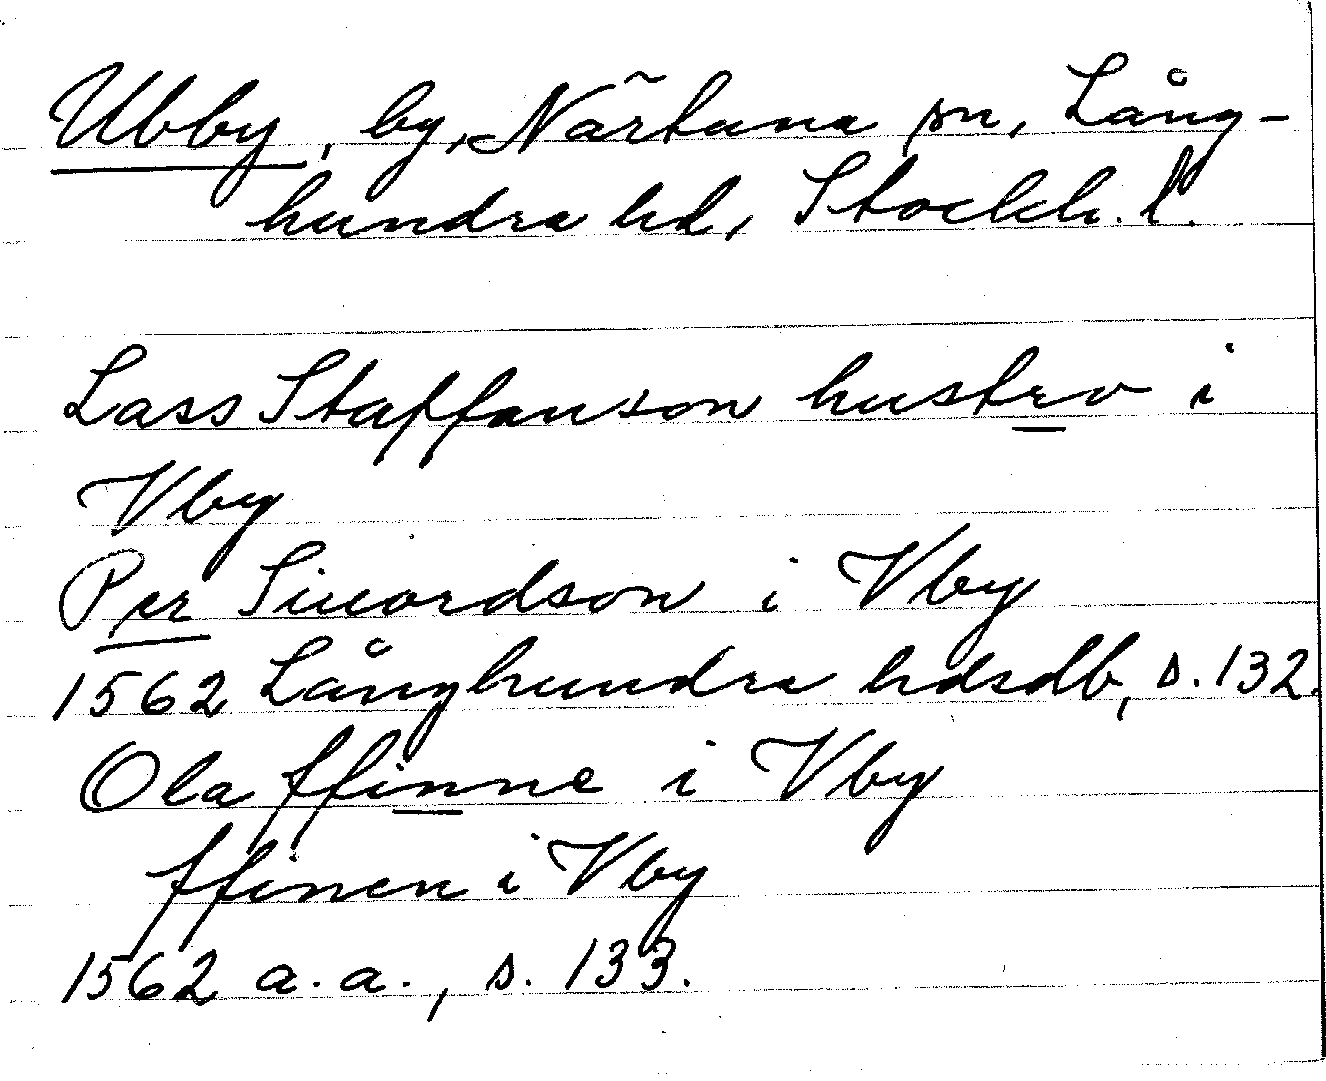 Ubby, by, Närtuna sn, Lång-
hundra hd, Stockh. l.
Lass Staffanson hustrv i
Vby
Per Siuordson i Vby
1562 Långhundra hdsdb, s. 132.
Ola ffinne i Vby
ffinen i Vby
1562 a.a., s. 133.